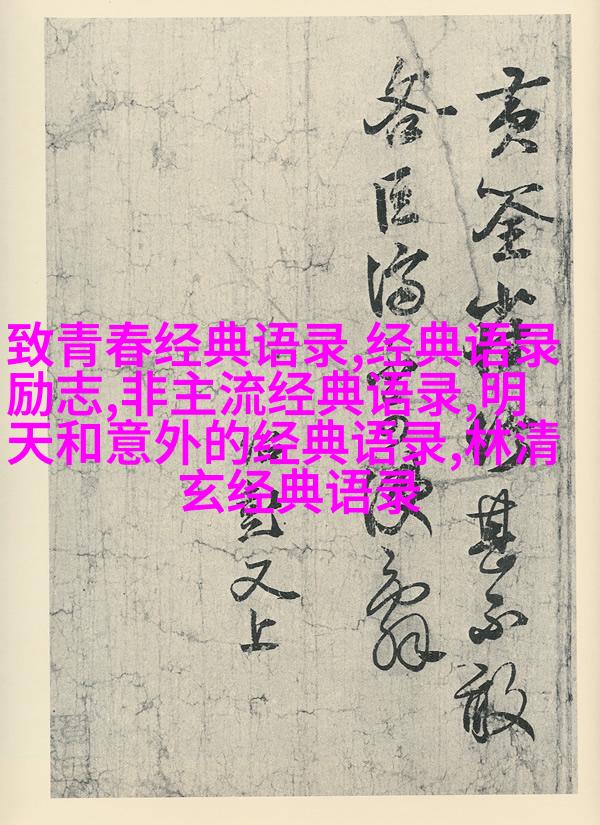 致青春经典语录,经典语录
励志,非主流经典语录,明
天和意外的经典语录,林清
玄经典语录
黄筌甚不敢
吝
又上